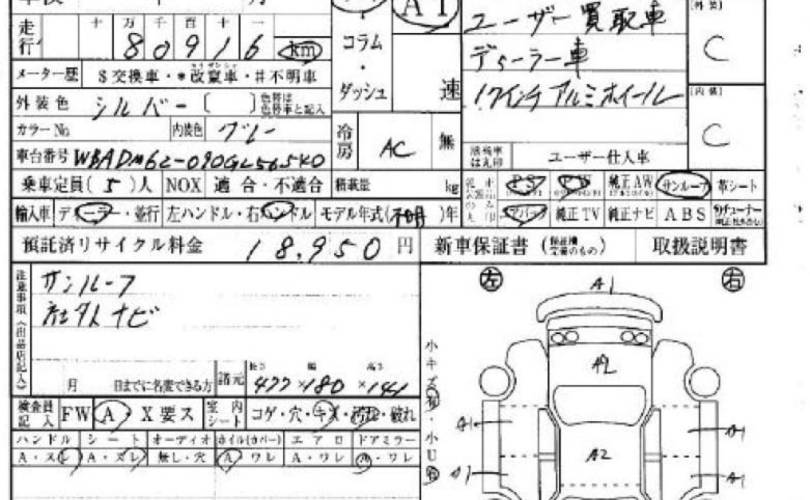 AT
ユーザー買取車
ディーラー車
17インチアルミホイール
走行 十万千百十一
80916 km
コラム・ダッシュ
速
メーター歴 $交換車・*改竄車・#不明車
外装色 シルバー ( )
カラーNo 内装色 グレー
冷房 AC 無
[外装] C
[内装] C
ユーザー仕入車
乗車定員(5)人 NOX 適合・不適合 積載量 kg
PS PW 純正AW サンルーフ 革シート
輸入車 ディーラー・並行 左ハンドル・右ハンドル モデル年式(不明)年
エアバック 純正TV 純正ナビ ABS
預託済リサイクル料金 18,950円 新車保証書 取扱説明書
注意事項(出品店記入)
サンルーフ
社外ナビ
月 日までに名変できる方
諸元 長さ 幅 高さ
477×180×141
検査員記入 FW A・X要ス 室内シート コゲ・穴・キズ・汚れ・破れ
ハンドル シート オーディオ ホイル(カバー) エアロ ドアミラー
A・スレ A・ズレ 無し・穴 A ワレ A・ワレ A・ワレ
左 右
A1
A2
A1 A1
A2
A1 A1